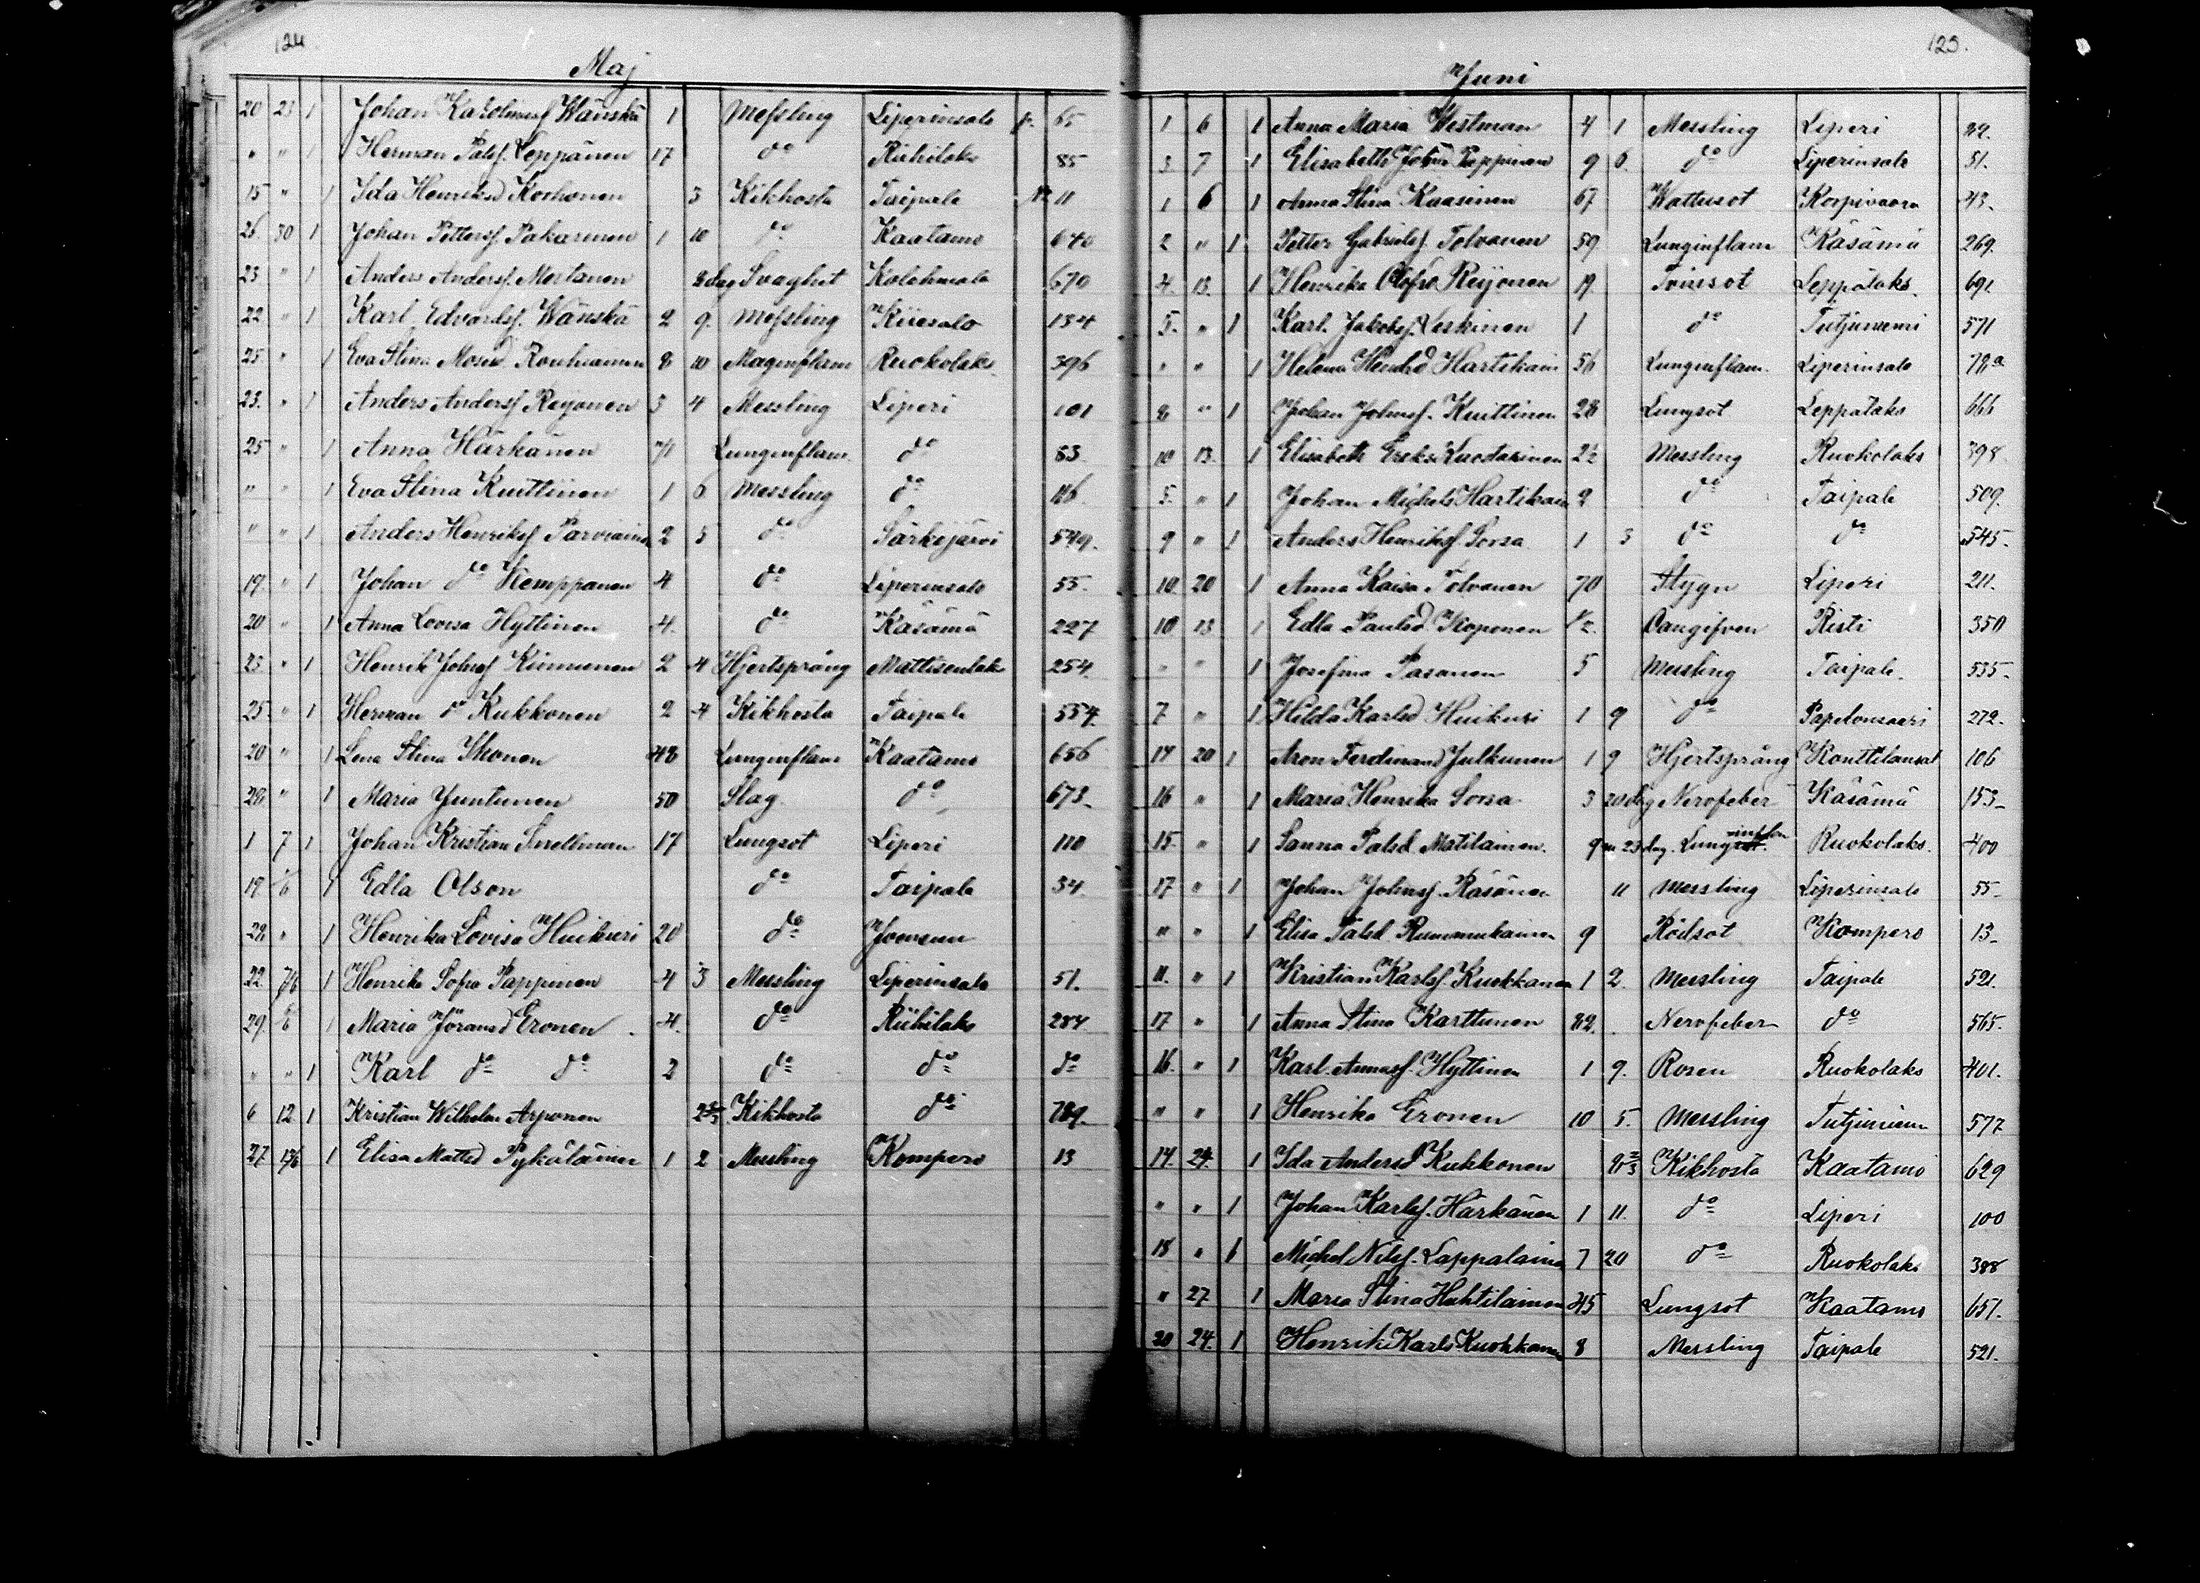 124.
Maj
20 23 1 Johan Karolinusf Wänskä 1 Messling Liperinsalo p. 65
" " 1 Herman Palsf. Leppänen 17 do Riihilaks 85
15 " 1 Ida Henriksd Korhonen 3 Kikhosta Taipale 11
26. 30 1 Johan Pettersf. Pakarinen 1 10 do Kaatamo 640
23 " 1 Anders Andersf. Mertanen 8 dag Svaghet Kolehmala 670
22 " 1 Karl Edvardsf. Wänskä 2 9. Messling Kiiesalo 134
25. " 1 Eva Stina Mosesd Rouhiainen 8 10 Maginflam Ruokolaks 396
23. " 1 Anders Andersf Reijonen 3 4 Messling Liperi 101
25 " 1 Anna Härkänen 71 Lunginflam. do 83
" " 1 Eva Stina Knittinen 1 6 Messling do 116
" " 1 Anders Henriksf Parviainen 2 5 do Särkijärvi 549.
19. " 1 Johan do Kemppanen 4 do Liperinsalo 55.
20 " 1 Anna Lovisa Hyttinen 4. do Käsämä 227
23 " 1 Henrik Johnsf Kinnunen 2 4 Hjertsprång Mattisenlaks 254.
25. " 1 Herman do Kukkonen 2 4 Kikhosta Taipale 554.
20 " 1 Lena Stina Ikonen 48 Lunginflam Kaatamo 656
28 " 1 Maria Juntunen 50 Slag. do 673.
1 7 1 Johan Kristian Snellman 17 Lungsot Liperi 110
19 /6 1 Edla Olson do Taipale 34.
29 " 1 Henrika Lovisa Huikuri 20 do Joensuu
22. 7/6 1 Henrika Sofia Pappinen 4 3 Messling Liperinsalo 51.
29. /6 1 Maria Jöransd Eronen 4. do Riihilaks 284
" " 1 Karl do do 2 do do do
6 12 1 Kristian Wilhelm Arponen Kikhosta do 789.
27 13/6 1 Elisa Mattsd Pykäläinen 1 2 Messling Kompero 13
125.
Juni
1 6 1 Anna Maria Westman 4 1 Messling Liperi 92.
3 7 1 Elisabeth Johnd Pappinen 9 6. do Liperinsalo 51.
1 6 1 Anna Stina Kaasinen 67 Wattusot Korpivaara 43.
2 " 1 Petter Gabrielsf. Tolvanen 59 Lunginflam Käsämä 269.
4. 13. 1 Henrika Olofsd Reijonen 19 Tvinsot Leppälaks 691.
5. " 1 Karl Jakobsf. Leskinen 1 do Tutjuniemi 571
" " 1 Helena Henrikd Hartikain 56 Lunginflam. Liperinsalo 72a
8 " 1 Johan Johnsf. Knittinen 28 Lungsot Leppälaks 666
10 13 1 Elisabeth Eriksd Kuodarinen 2½ Messling Ruokolaks 398
5. " 1 Johan Michels Hartikain 2 do Taipale 509.
9 " 1 Anders Henriksf. Sorsa 1 3 do do 545.
10 20 1 Anna Kaisa Tolvanen 70 Stygn Liperi 211.
10 13 1 Edla Paulsd Koponen ½. Oangifven Risti 350
" " 1 Josefina Pasanen 5 Messling Taipale. 535.
7 " 1 Hilda Karlsd Huikuri 1 9 do Papelonsaari 272.
14 20 1 Aron Ferdinand Julkunen 1 9 Hjertsprång Konttilansal 106
16 " 1 Maria Henrika Sorsa 3 20 dag Nervfeber Käsämä 153.
15. " 1 Sanna Palsd Matilainen. 9 m 23 dag. Lunginflam Ruokolaks. 400
17 " 1 Johan Johnsf. Räsänen 11 Messling Liperinsalo 55.
" " 1 Elisa Palsd Rummukainen 9 Rödsot Kompero 13.
11. " 1 Kristian Karlsf. Kuokkanen 1 2. Messling Taipale 521.
17 " 1 Anna Stina Karttunen 82. Nervfeber do 565.
16. " 1 Karl Annasf. Hyttinen 1 9. Rosen Ruokolaks 401.
" " 1 Henrika Eronen 10 5. Messling Tutjuniem 577
14. 24. 1 Ida Andersd Kukkonen Kikhosta Kaatamo 629
" " 1 Johan Karlsf. Härkänen 1 11. do Liperi 100
18 " 1 Michel Nilsf. Lappalainen 7 20 do Ruokolaks 388
" 27 1 Maria Stina Huhtilainen 45 Lungsot Kaatamo 651.
20 24. 1 Henrik Karls Kuokkanen 8 Messling Taipale 521.